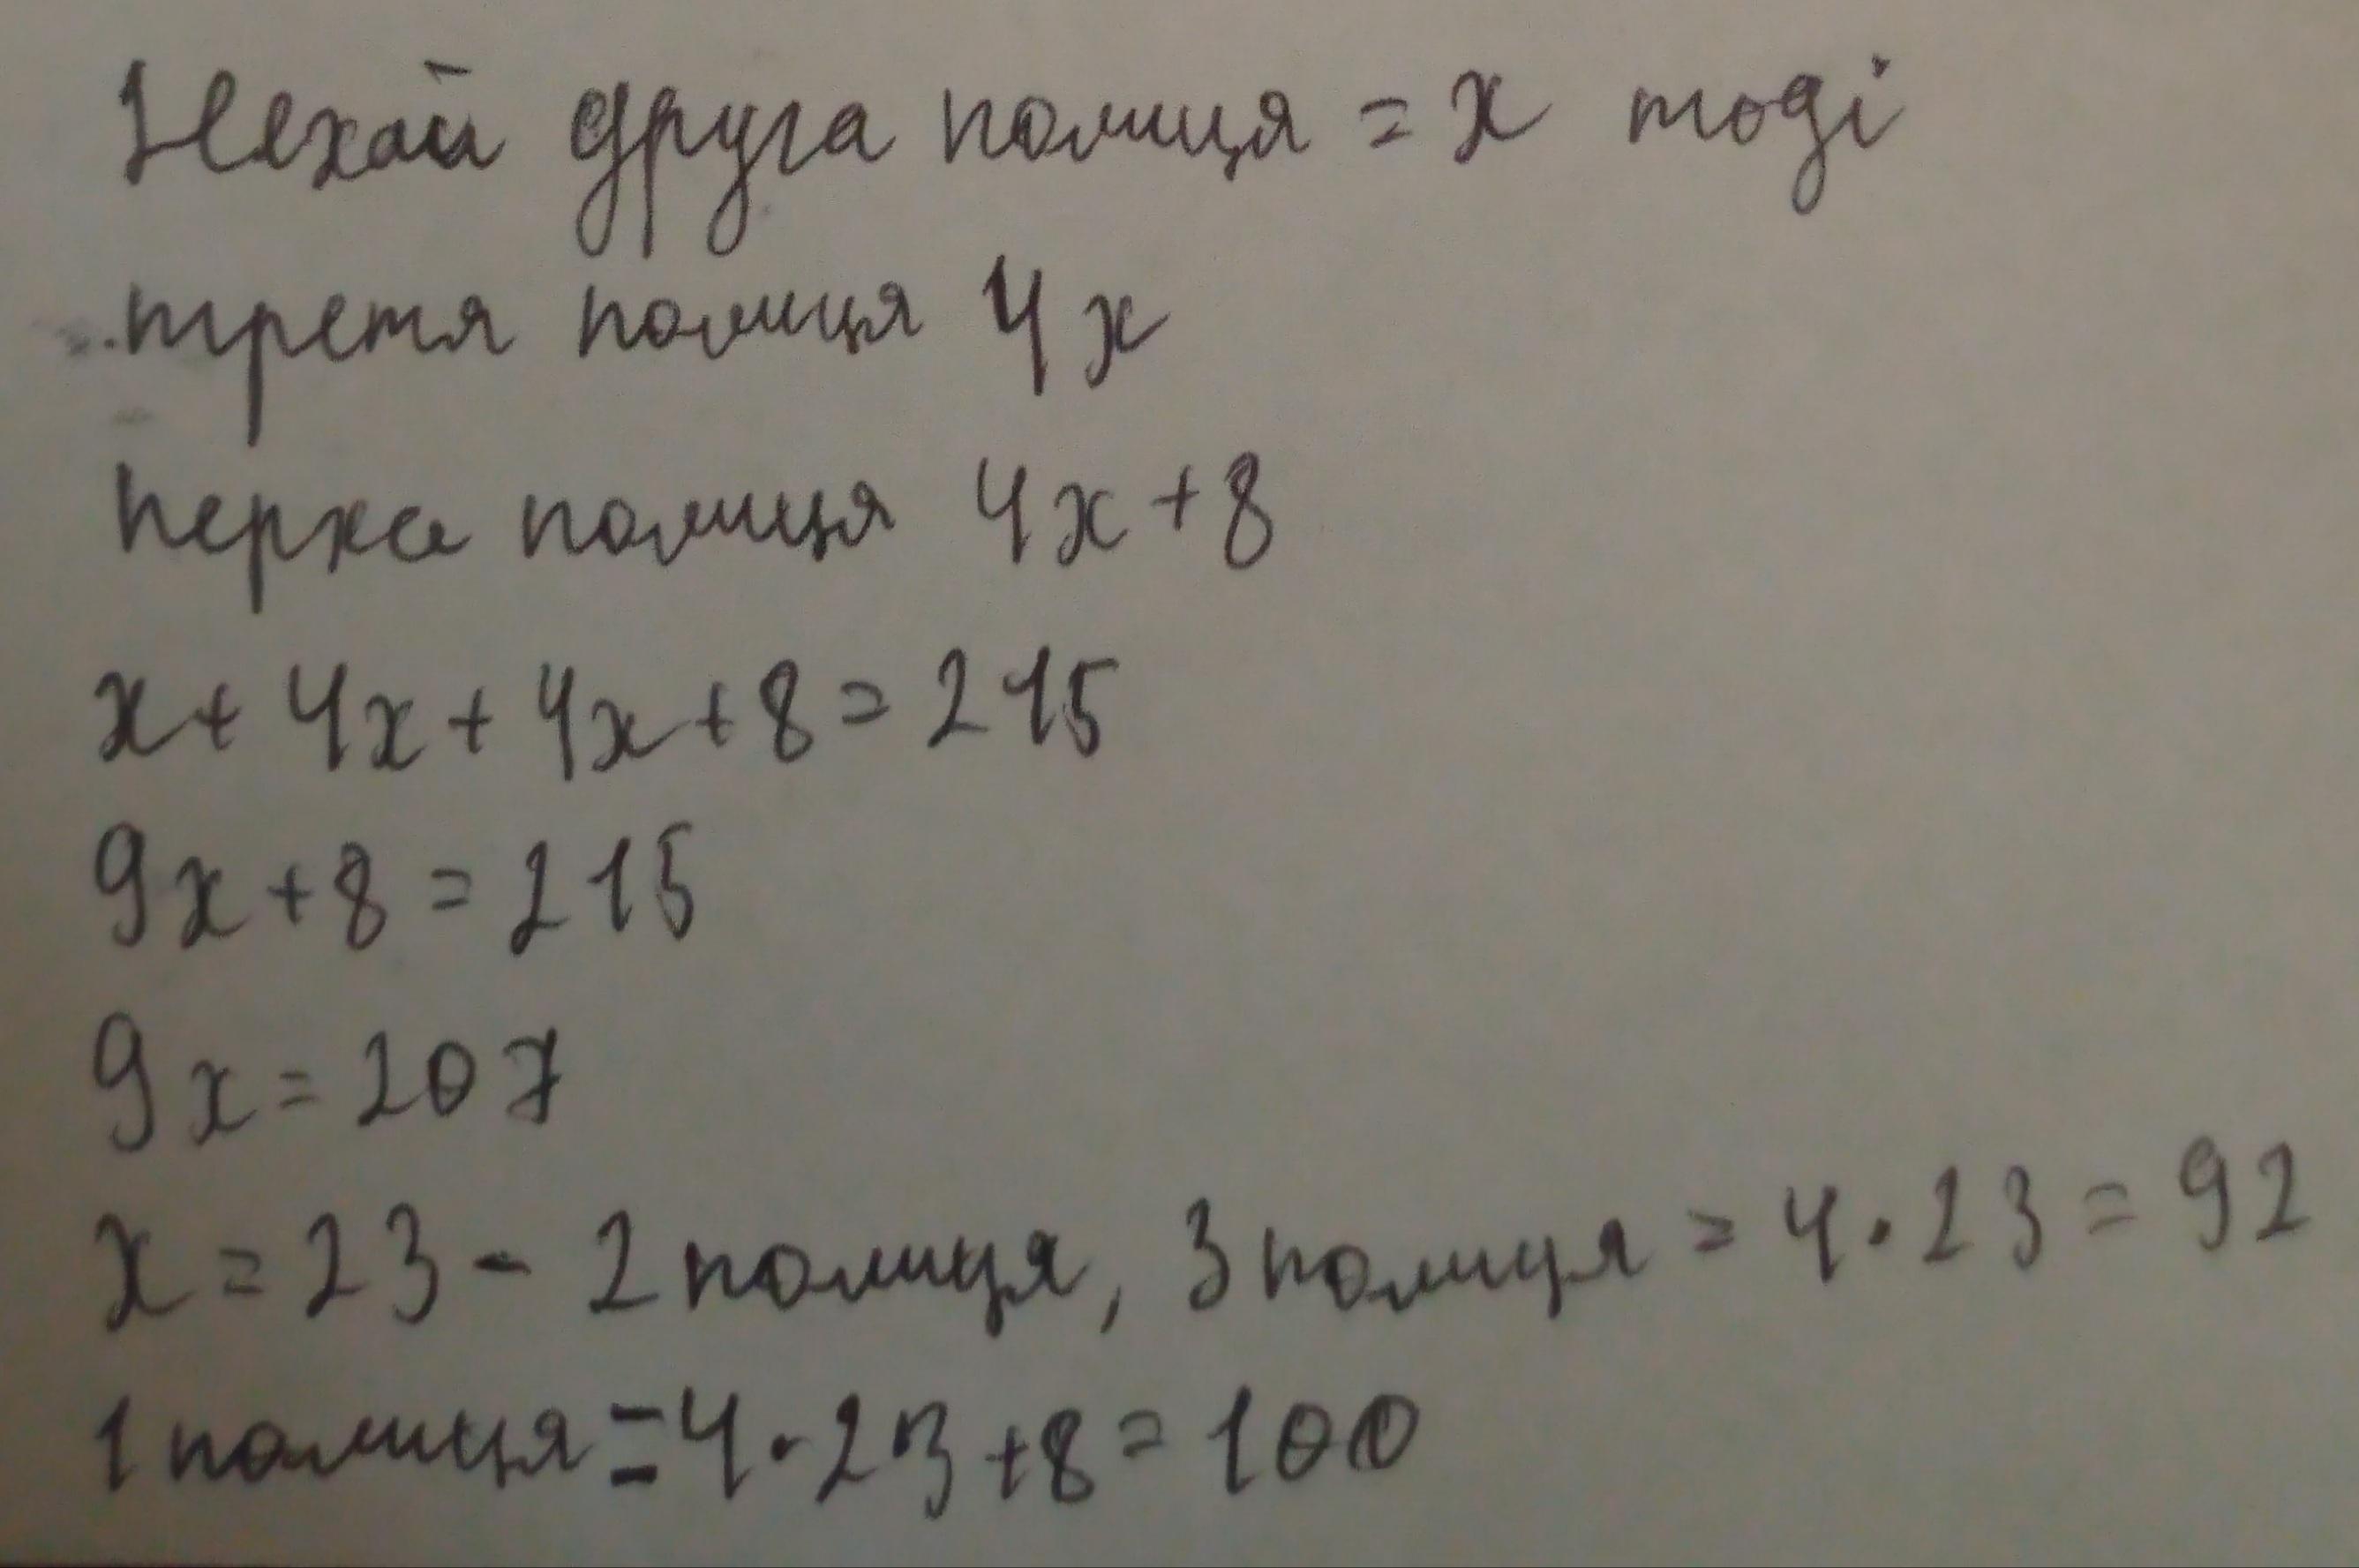 Нехай друга полиця = x тоді
третя полиця 4x
перха полиця 4x + 8
x + 4x + 4x + 8 = 215
9x + 8 = 215
9x = 207
x = 23 - 2 полиця, 3 полиця = 4 · 23 = 92
1 полиця = 4 · 23 + 8 = 100